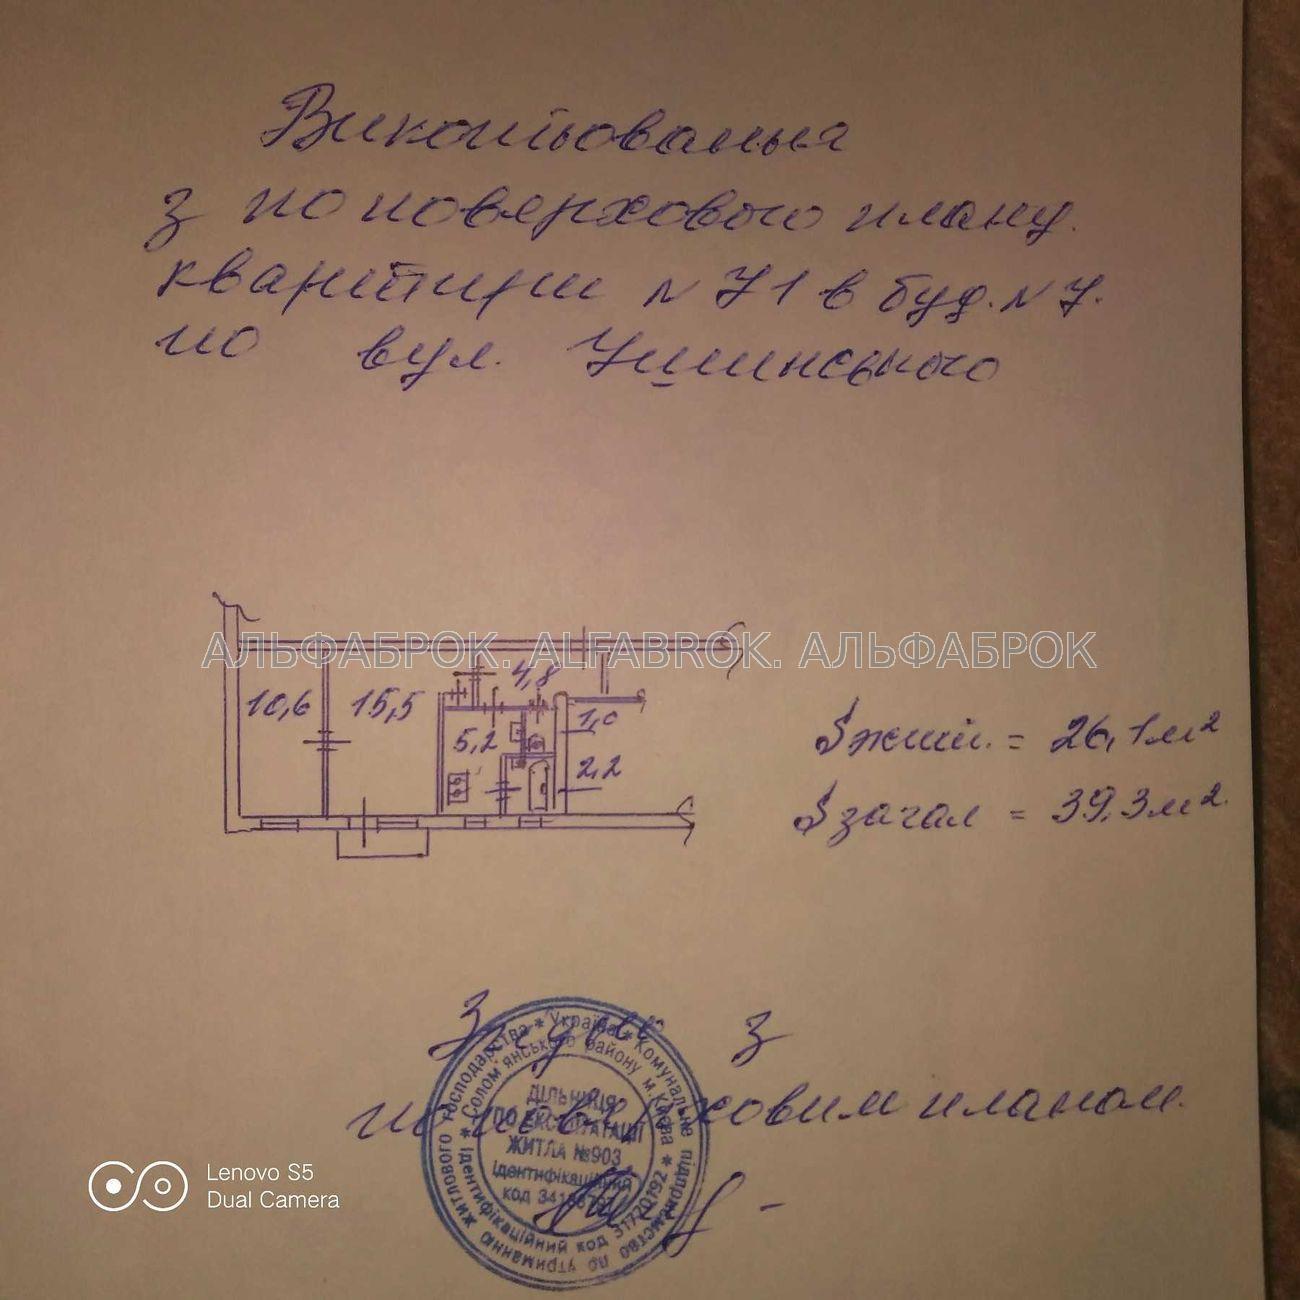 Викопіювання
з по поверхового плану.
квартири № 71 в буд. № 7.
по вул. Ушинського
АЛЬФАБРОК. ALFABROK. АЛЬФАБРОК
4,8
10,6 15,5
5,2
1,0
2,2
S жил. = 26,1 м²
S загал = 39,3 м²
Згідно з
поповерховим планом.
Україна * Комунальне підприємство по утриманню житлового господарства *
Солом'янського району м.Києва * Ідентифікаційний код 31720792 *
ДІЛЬНИЦЯ
ПО ЕКСПЛУАТАЦІЇ
ЖИТЛА №903
Ідентифікаційний
код
Lenovo S5
Dual Camera